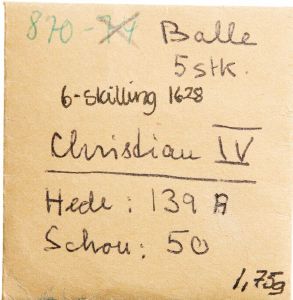 870- Balle
5 stk.
6-skilling 1628
Christian IV
Hede: 139 A
Schou: 50
1,75g